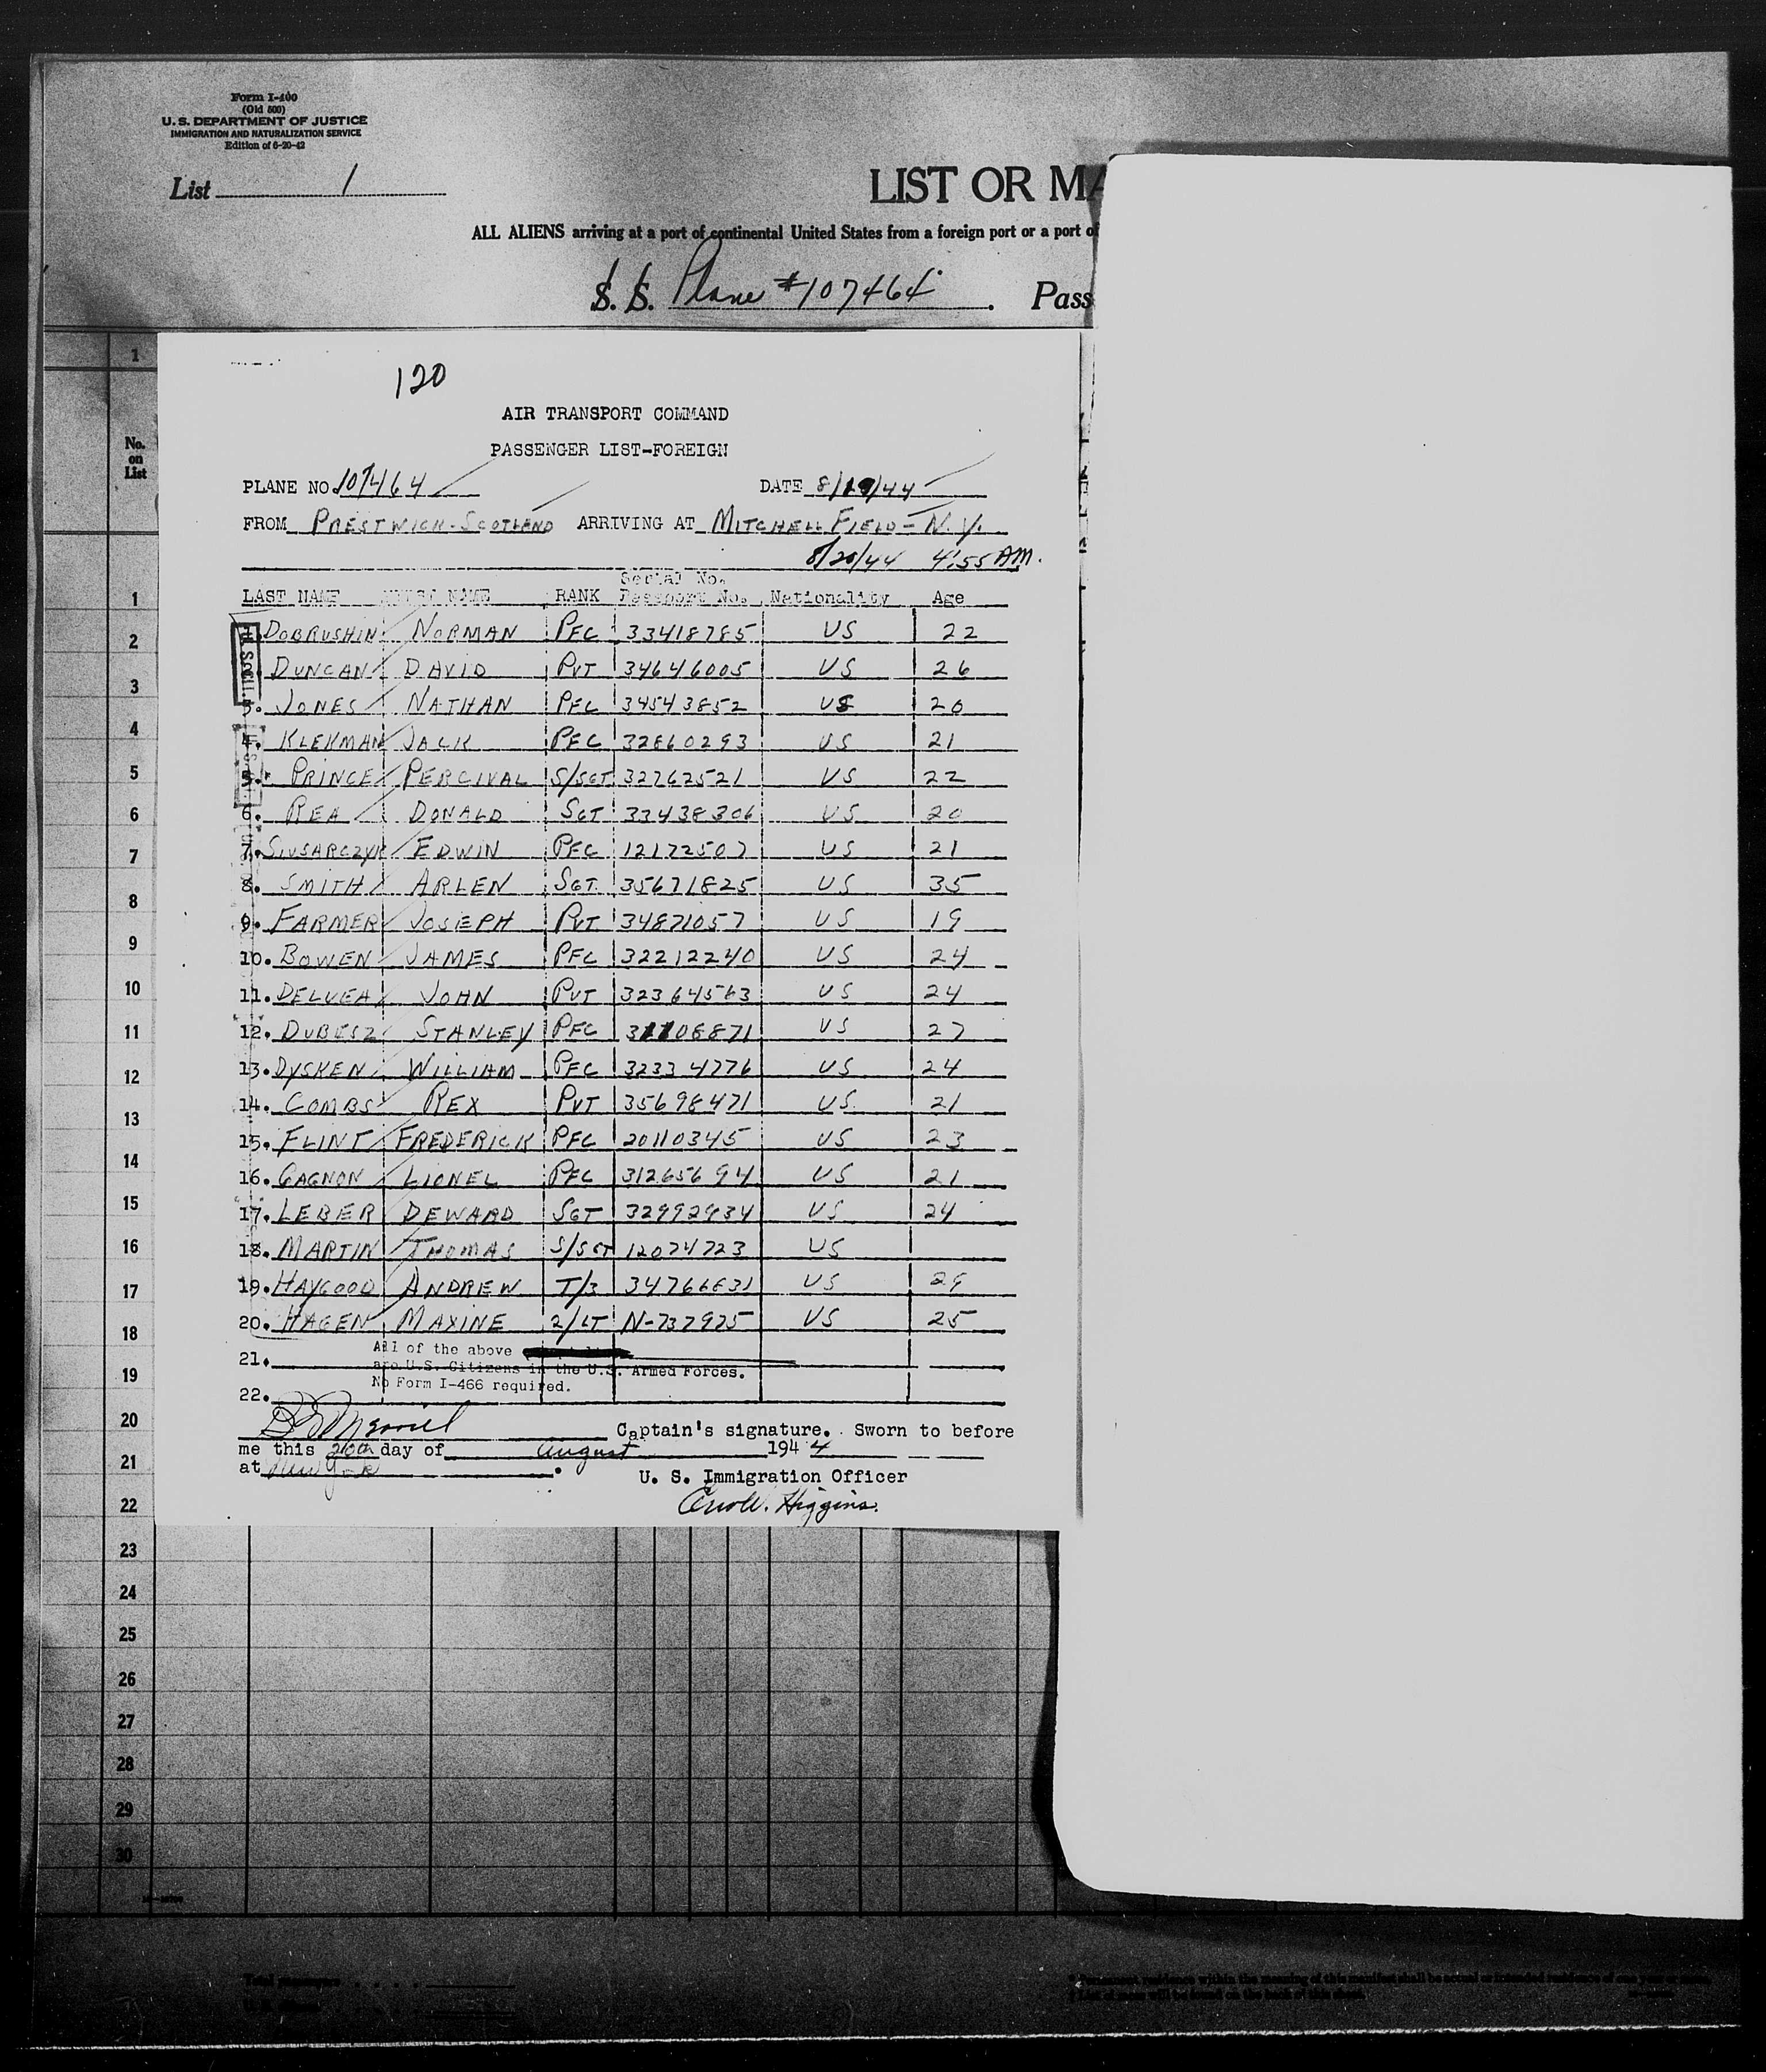 Form I-400
(Old 500)
U. S. DEPARTMENT OF JUSTICE
IMMIGRATION AND NATURALIZATION SERVICE
Edition of 6-20-42
List 1
LIST OR MA
ALL ALIENS arriving at a port of continental United States from a foreign port or a port of
S. S. Plane #107464. Pass
120
AIR TRANSPORT COMMAND
PASSENGER LIST-FOREIGN
PLANE NO 107464 DATE 8/19/44
FROM PRESTWICK-SCOTLAND ARRIVING AT MITCHELL FIELD-N.Y.
8/20/44 4:55 AM.
Serial No.
LAST NAME FIRST NAME RANK Passport No. Nationality Age
1. DOBRUSHIN NORMAN PFC 33418785 US 22
2. DUNCAN DAVID PVT 34646005 US 26
3. JONES NATHAN PFC 34543852 US 20
4. KLEKMAN JACK PFC 32860293 US 21
5. PRINCE PERCIVAL S/SGT 32762521 US 22
6. REA DONALD SGT 33438306 US 20
7. SLUSARCZYK EDWIN PFC 12172507 US 21
8. SMITH ARLEN SGT 35671825 US 35
9. FARMER JOSEPH PVT 34871057 US 19
10. BOWEN JAMES PFC 32212240 US 24
11. DELUEA JOHN PVT 32364563 US 24
12. DUBESZ STANLEY PFC 31108871 US 27
13. DYSKEN WILLIAM PFC 32334776 US 24
14. COMBS REX PVT 35698471 US 21
15. FLINT FREDERICK PFC 20110345 US 23
16. GAGNON LIONEL PFC 31265694 US 21
17. LEBER DEWARD SGT 32992934 US 24
18. MARTIN THOMAS S/SGT 12074723 US
19. HAYGOOD ANDREW T/3 34766831 US 29
20. HAGEN MAXINE 2/LT N-737975 US 25
All of the above
21. are U.S. Citizens in the U.S. Armed Forces.
No Form I-466 required.
22.
Captain's signature. Sworn to before
me this 20th day of August 1944
at New York.
U. S. Immigration Officer
Higgins.
No.
on
List
1
1
2
3
4
5
6
7
8
9
10
11
12
13
14
15
16
17
18
19
20
21
22
23
24
25
26
27
28
29
30
Total passengers
* Permanent residence within the meaning of this manifest shall be actual or intended residence of one year or more.
† List of races will be found on the back of this sheet.